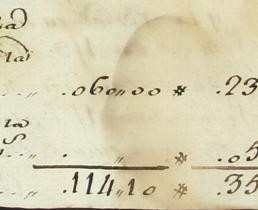 la
.. „ .060„00 * .23
la
.. „ . „ * .05
.. „ .114„10 * .35